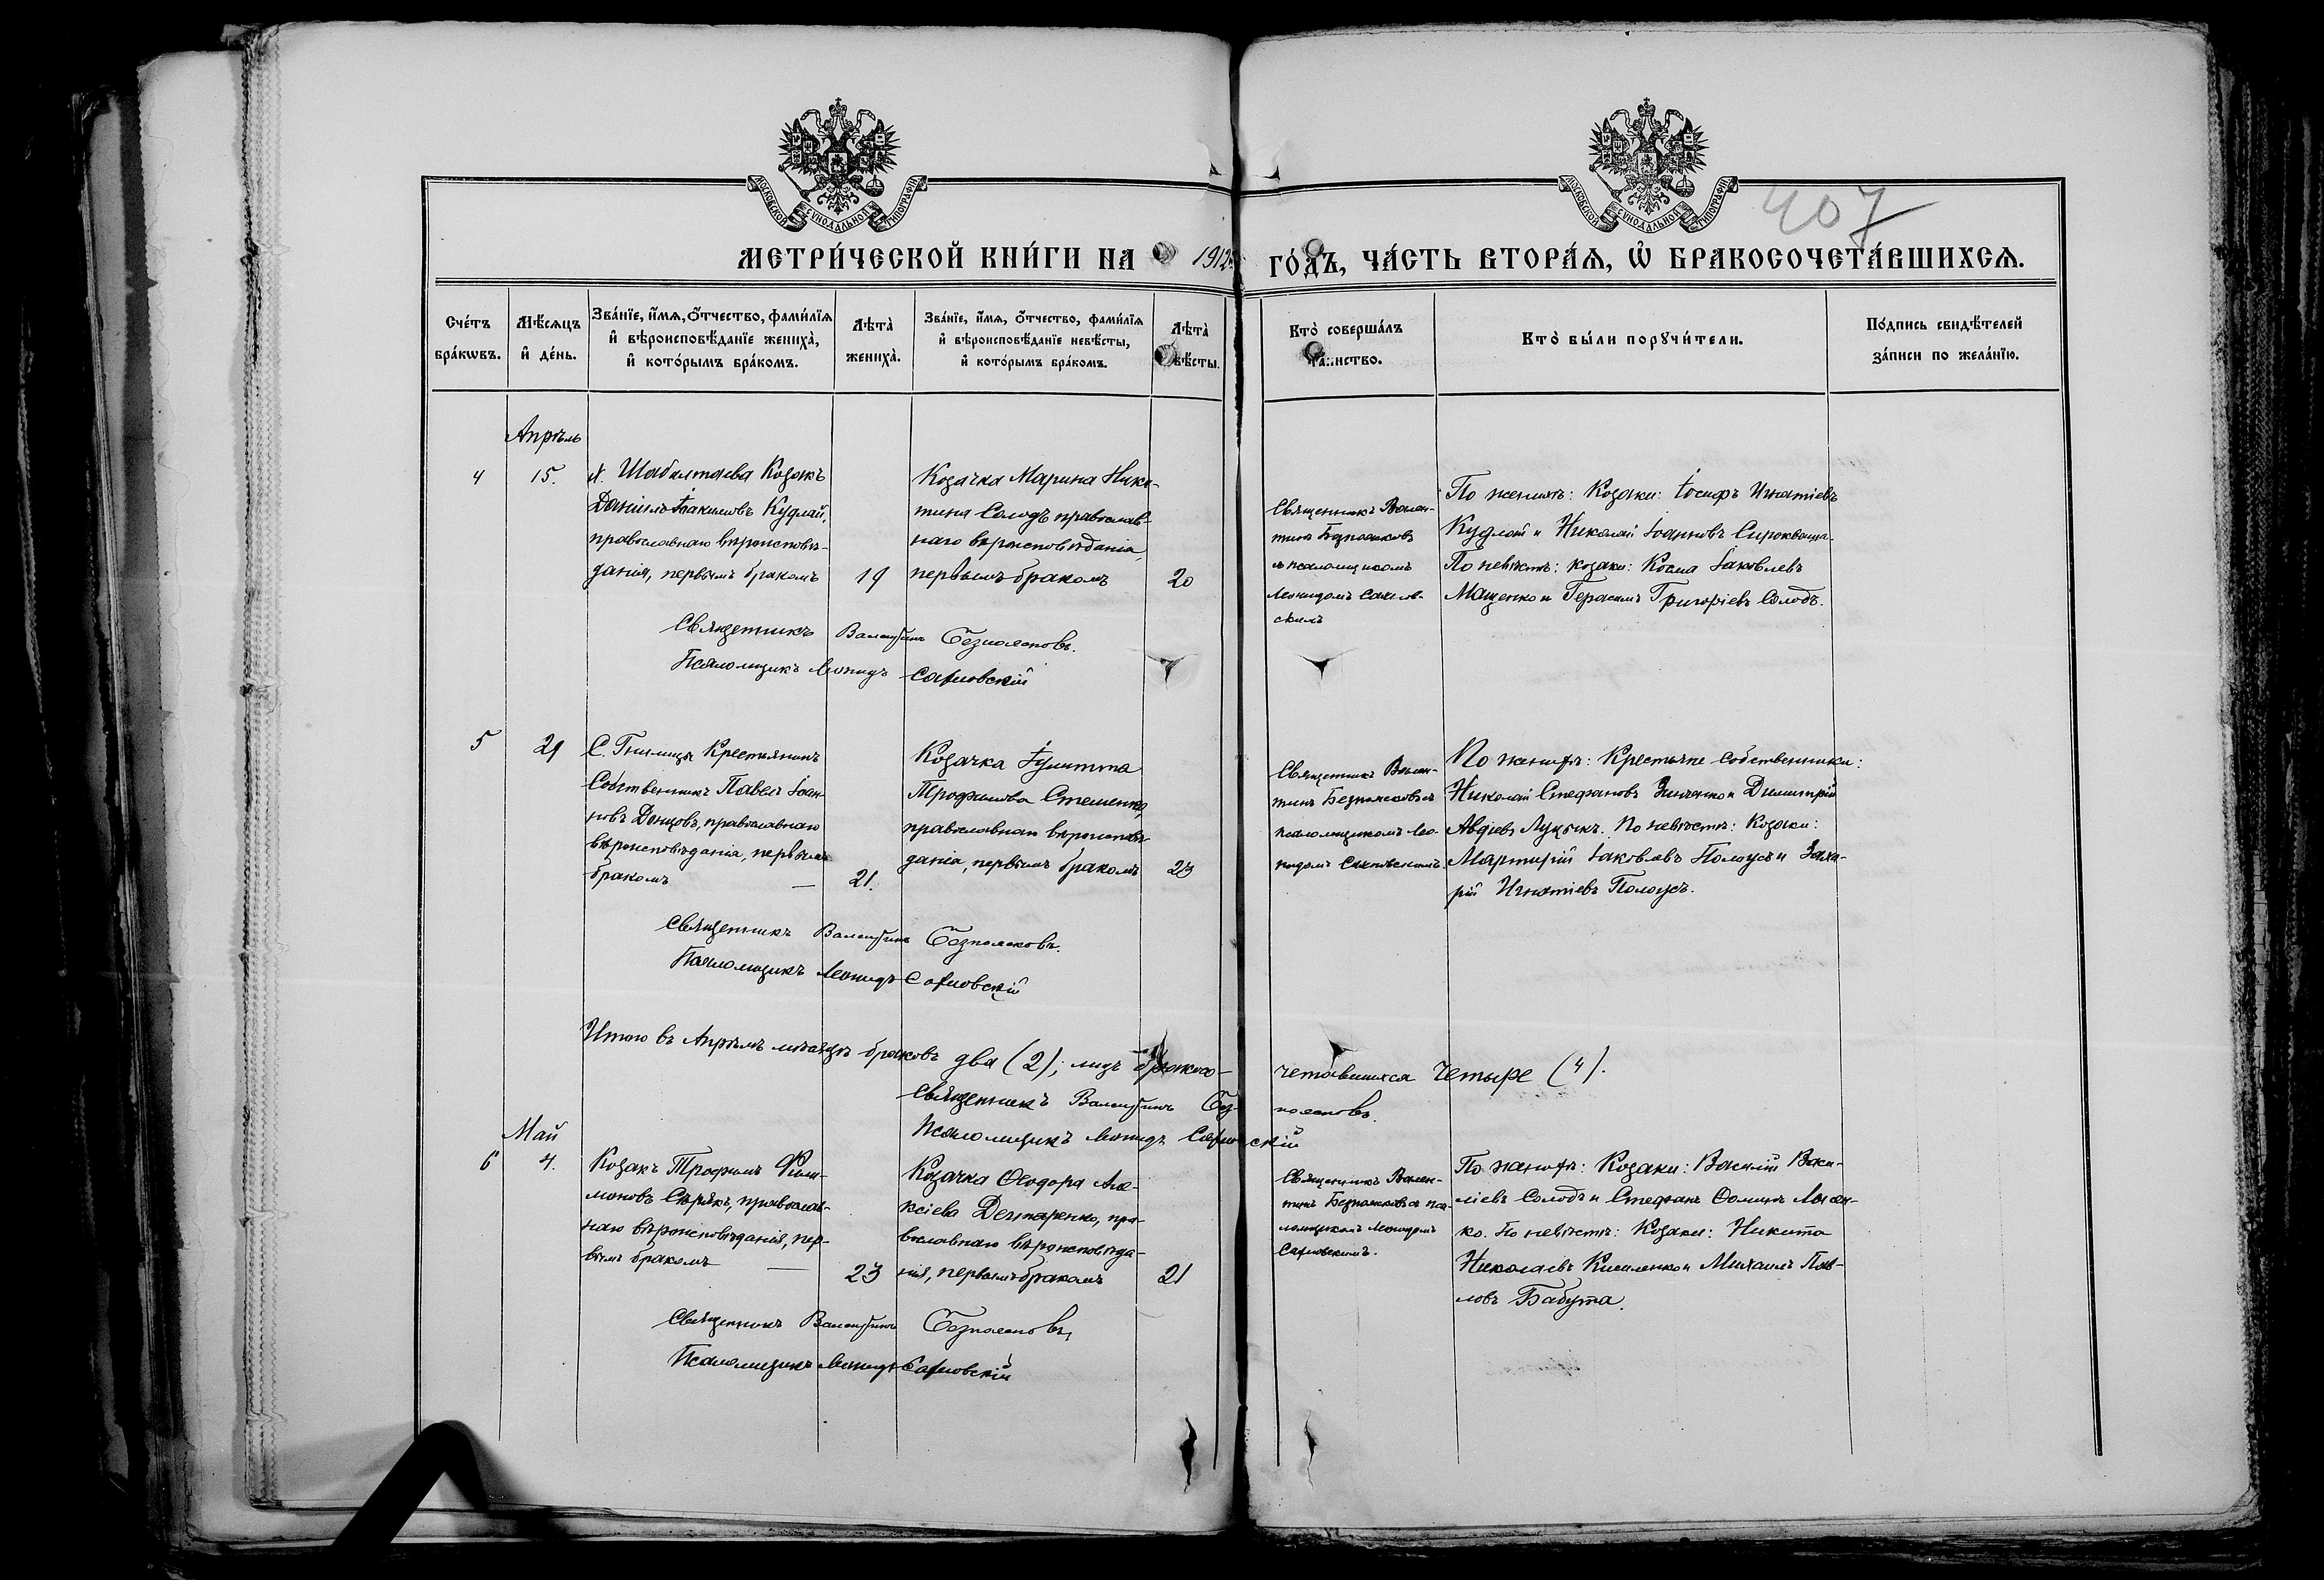 МОСКОВСКОЙ СѴНОДАЛЬНОЙ ТИПОГРАФІИ
МОСКОВСКОЙ СѴНОДАЛЬНОЙ ТИПОГРАФІИ
407
МЕТРИ́ЧЕСКОЙ КНИ́ГИ НА 1912 ГО́ДЪ, ЧА́СТЬ ВТОРА́Ѧ, Ѽ БРАКОСОЧЕТА́ВШИХСѦ.
Сче́тъ бра́кѡвъ.
Мѣ́сѧцъ и҆ де́нь.
Зва́нїе, и҆́мѧ, ѻ҆́тчество, фами́лїѧ и҆ вѣроисповѣ́данїе жениха̀, и҆ кото́рымъ бра́комъ.
Лѣта̀ жениха̀.
Зва́нїе, и҆́мѧ, ѻ҆́тчество, фами́лїѧ и҆ вѣроисповѣ́данїе невѣ́сты, и҆ кото́рымъ бра́комъ.
Лѣта̀ вѣ́сты.
Кто̀ соверша́лъ та́инство.
Кто̀ бы́ли порꙋчи́тели.
По́дпись свидѣ́телей за́писи по жела́нїю.
Апрѣль
4
15.
х. Шабалтаева Козакъ
Даніилъ Іоакимовъ Кудлай,
православнаго вѣроисповѣ-
данія, первымъ бракомъ
19
Козачка Марина Ники-
тина Солодъ православ-
наго вѣроисповѣданія
первымъ бракомъ
20
Священникъ Вален-
тинъ Безпоясковъ
съ псаломщикомъ
Леонидомъ Сахнов-
скимъ
По женихѣ: Козаки: Іосифъ Игнатіевъ
Кудлай и Николай Іоанновъ Сирокваша.
По невѣстѣ: козаки: Косма Іаковлевъ
Маценко и Герасимъ Григоріевъ Солодъ.
Священникъ Валентинъ Безпоясковъ.
Псаломщикъ Леонидъ Сахновскій
5
29
С. Гнилицы Крестьянинъ
Собственникъ Павелъ Іоан-
новъ Донцовъ, православнаго
вѣроисповѣданія, первымъ
бракомъ —
21.
Козачка Іулитта
Трофимова Стешенко,
православнаго вѣроисповѣ-
данія, первымъ бракомъ
23
Священникъ Вален-
тинъ Безпоясковъ съ
псаломщикомъ Лео-
нидомъ Сахновскимъ
По женихѣ: Крестьяне собственники:
Николай Стефановъ Зинченко и Димитрій
Авдіевъ Луцыкъ. По невѣстѣ: Козаки:
Мартирій Іаковлевъ Полоусъ и Заха-
рій Игнатіевъ Полоусъ.
Священникъ Валентинъ Безпоясковъ.
Псаломщикъ Леонидъ Сахновскій
Итого въ Апрѣлѣ мѣсяцѣ браковъ два (2); лицъ бракосо-
четавшихся четыре (4).
Священникъ Валентинъ Безпоясковъ.
Псаломщикъ Леонидъ Сахновскій
Май
6
4.
Козакъ Трофимъ Фили-
моновъ Сѣрякъ, православ-
наго вѣроисповѣданія, пер-
вымъ бракомъ —
23
Козачка Ѳеодора Але-
ксіева Дехтяренко, пра-
вославнаго вѣроисповѣда-
нія, первымъ бракомъ
21
Священникъ Вален-
тинъ Безпоясковъ съ пса-
ломщикомъ Леонидомъ
Сахновскимъ.
По женихѣ: Козаки: Василій Васи-
ліевъ Солодъ и Стефанъ Ѳоминъ Лысен-
ко. По невѣстѣ: Козаки: Никита
Николаевъ Кисиленко и Михаилъ Пав-
ловъ Бабута.
Священникъ Валентинъ Безпоясковъ
Псаломщикъ Леонидъ Сахновскій